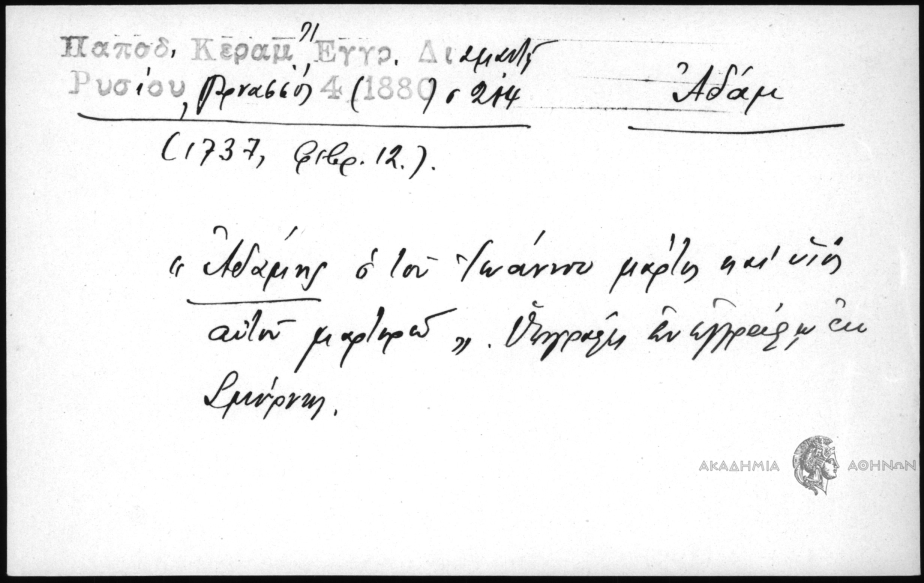 Παποδ. Κεραμ. Εγγρ. Διαμαντῆ
Ρυσίου, Παρνασσός 4 (1880) σ 214
Ἀδάμ
(1737, Φεβρ. 12.).
" Ἀδάμης ὁ τοῦ Ἰωάννου μάρτης καὶ υἱὸς
αὐτοῦ μαρτυρῶ ". Ὑπογραφὴ ἐν ἐγγράφῳ ἐκ
Σμύρνης.
ΑΚΑΔΗΜΙΑ ΑΘΗΝΩΝ